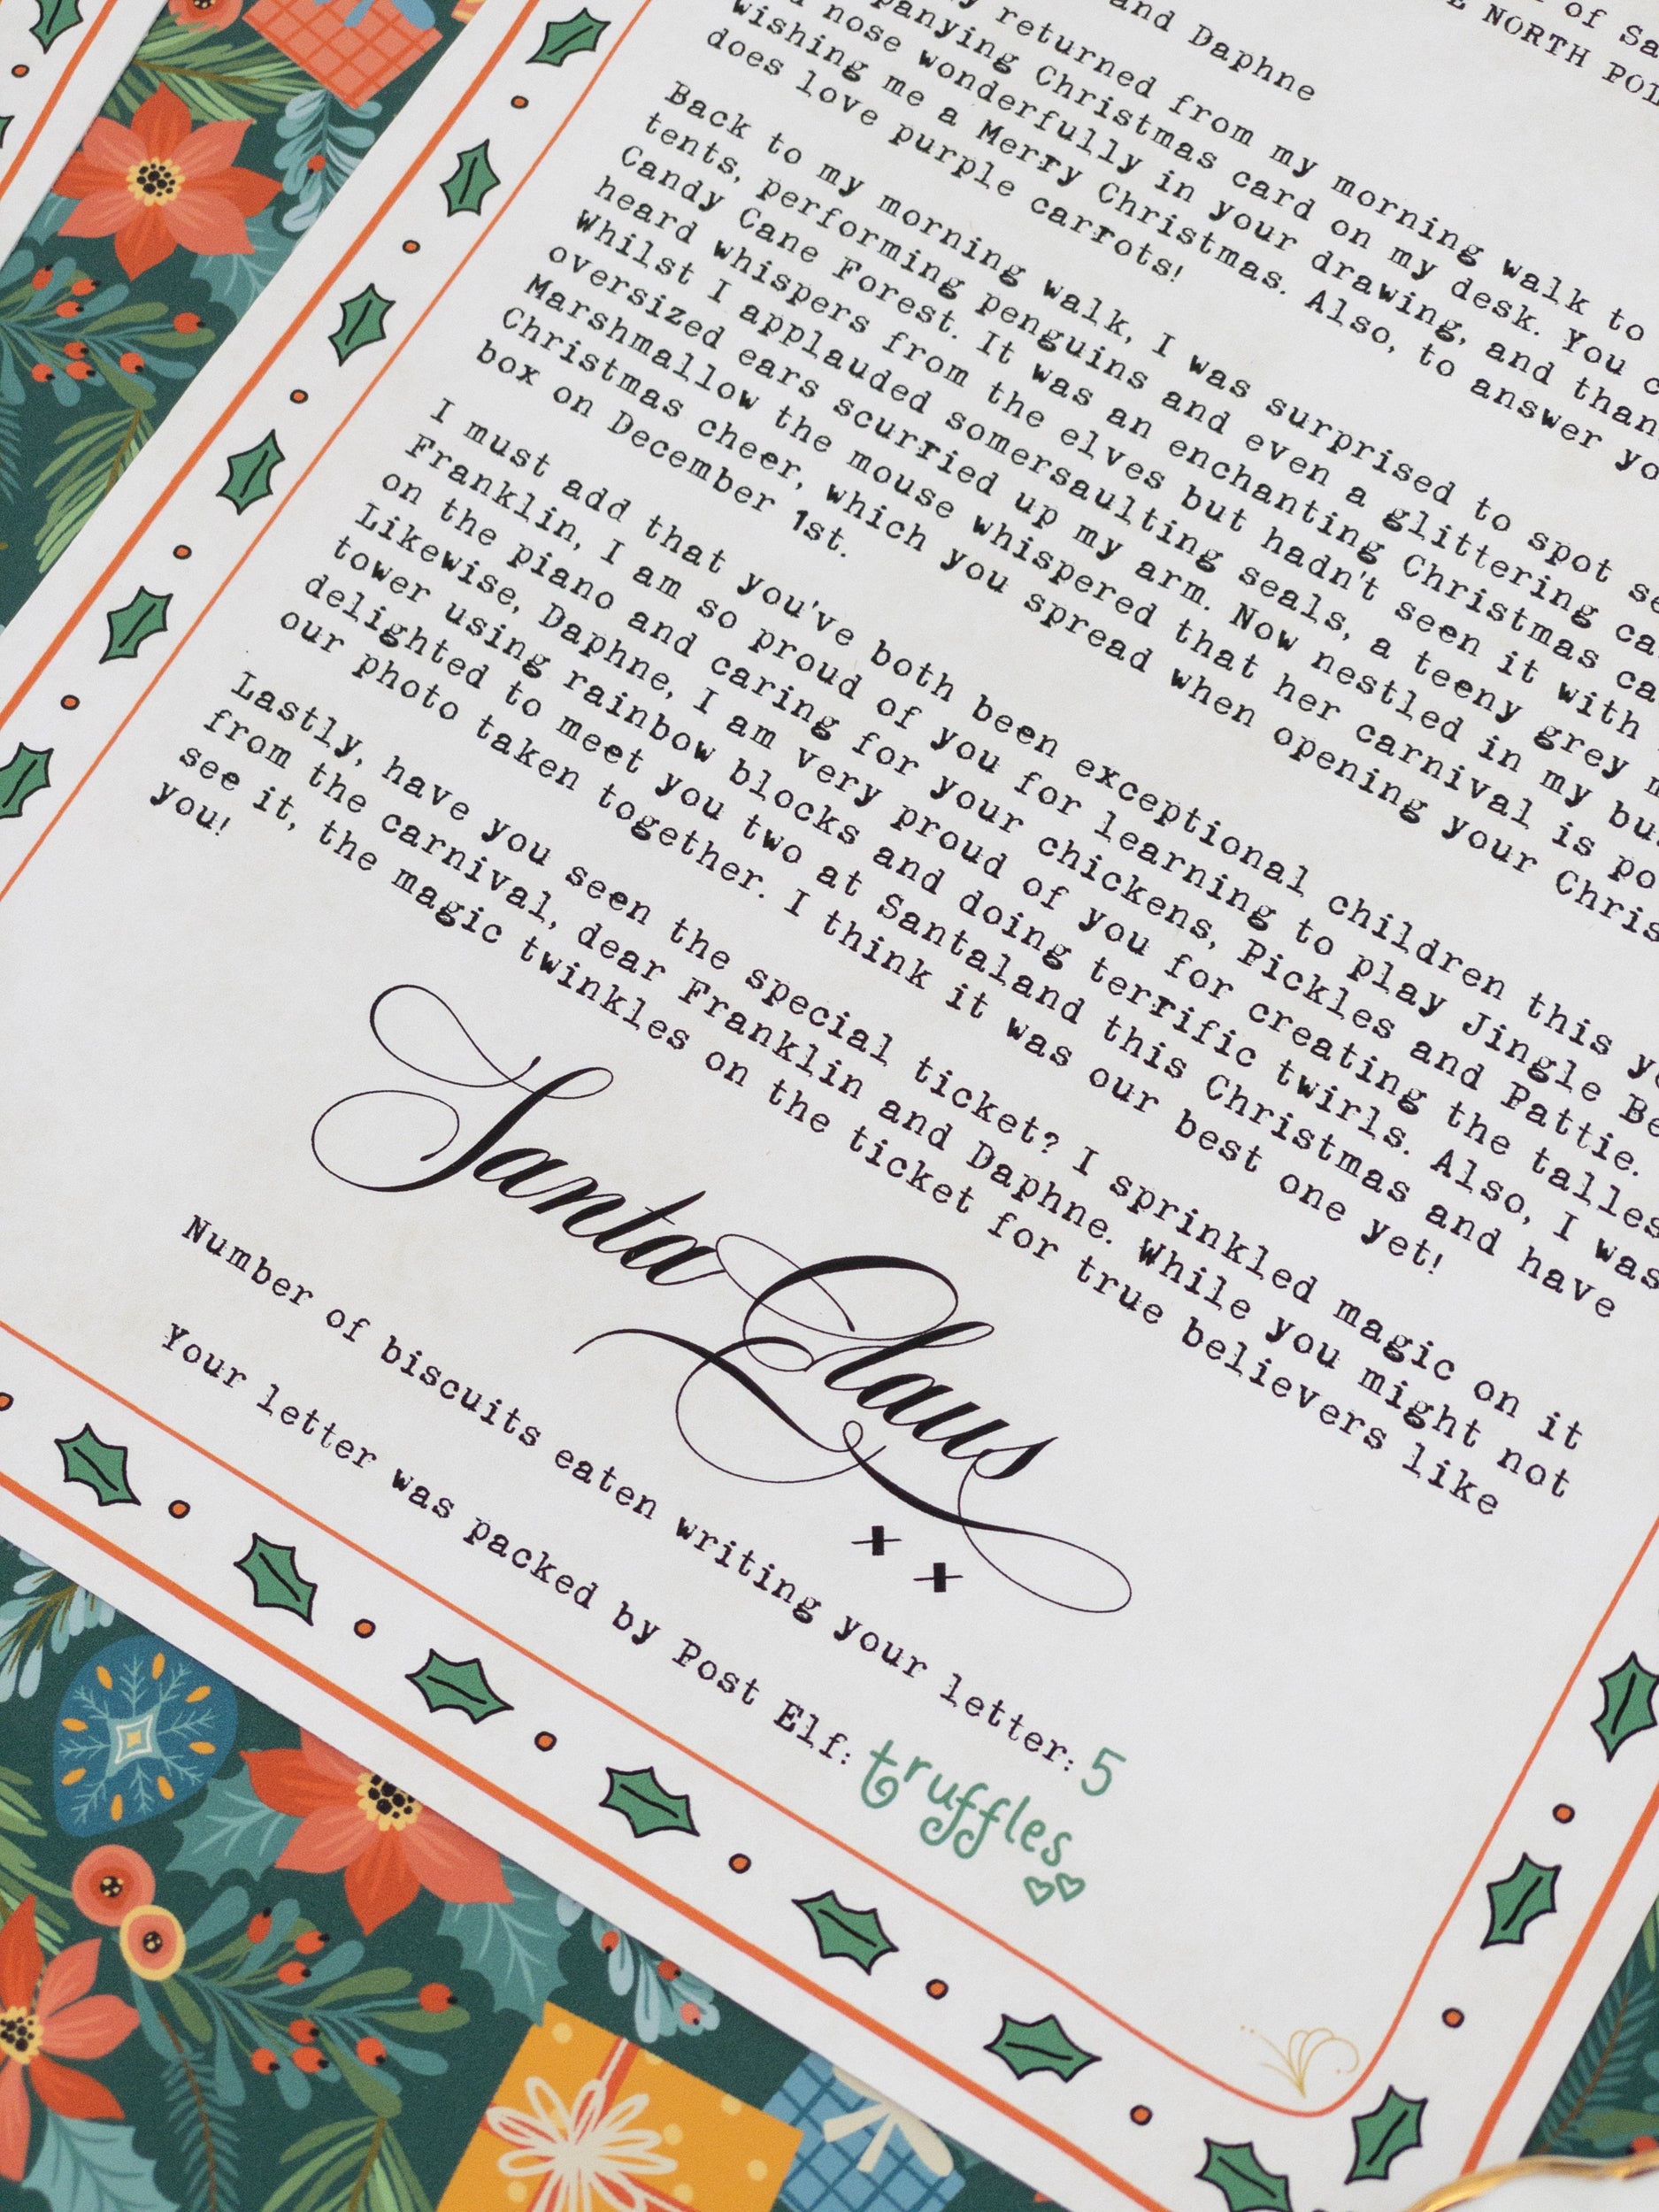 of Sa
NORTH POL
and Daphne
returned from my morning walk to
Christmas card on my desk. You
nose wonderfully in your drawing, and than
wishing me a Merry Christmas. Also, to answer yo
does love purple carrots!
Back to my morning walk, I was surprised to spot se
tents, performing penguins and even a glittering ca
Candy Cane Forest. It was an enchanting Christmas ca
heard whispers from the elves but hadn't seen it with
Whilst I applauded somersaulting seals, a teeny grey m
oversized ears scurried up my arm. Now nestled in my bu
Marshmallow the mouse whispered that her carnival is po
Christmas cheer, which you spread when opening your Chris
box on December 1st.
I must add that you've both been exceptional children this ye
Franklin, I am so proud of you for learning to play Jingle Be
on the piano and caring for your chickens, Pickles and Pattie.
Likewise, Daphne, I am very proud of you for creating the talles
tower using rainbow blocks and doing terrific twirls. Also, I was
delighted to meet you two at Santaland this Christmas and have
our photo taken together. I think it was our best one yet!
Lastly, have you seen the special ticket? I sprinkled magic on it
from the carnival, dear Franklin and Daphne. While you might not
see it, the magic twinkles on the ticket for true believers like
you!
Santa Claus
x x
Number of biscuits eaten writing your letter: 5
Your letter was packed by Post Elf: truffles